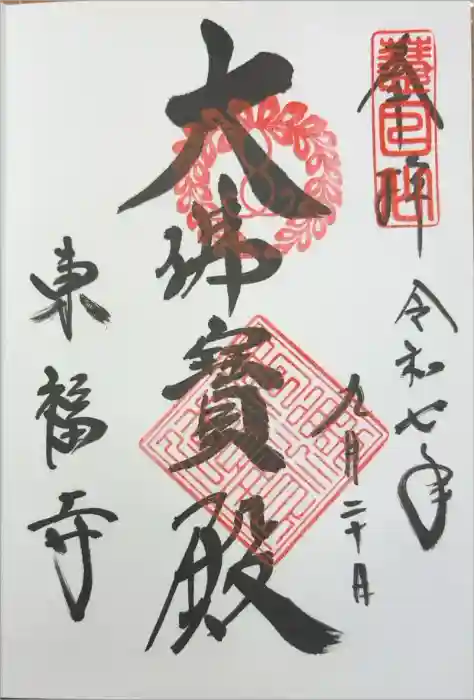 奉拝
令和七年
九月二十日
大佛寶殿
東福寺